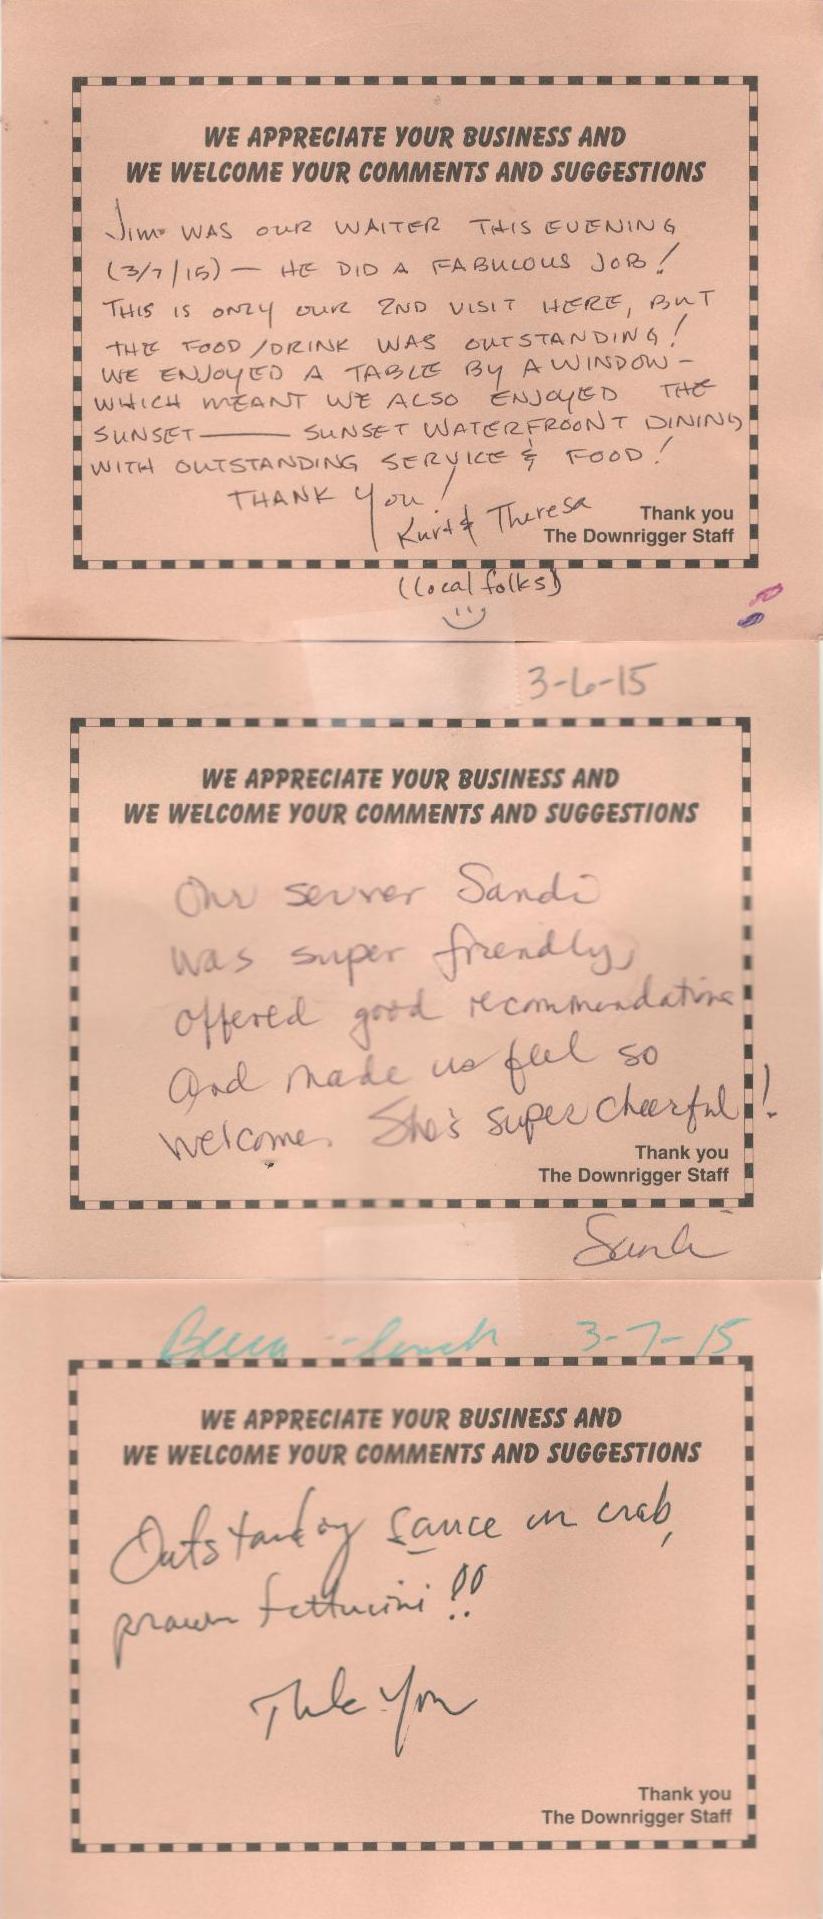 WE APPRECIATE YOUR BUSINESS AND
WE WELCOME YOUR COMMENTS AND SUGGESTIONS
Jim WAS OUR WAITER THIS EVENING
(3/7/15) — HE DID A FABULOUS JOB!
THIS IS ONLY OUR 2ND VISIT HERE, BUT
THE FOOD/DRINK WAS OUTSTANDING!
WE ENJOYED A TABLE BY A WINDOW -
WHICH MEANT WE ALSO ENJOYED THE
SUNSET —— SUNSET WATERFROONT DINING
WITH OUTSTANDING SERVICE & FOOD!
THANK YOU!
Kurt & Theresa
Thank you
The Downrigger Staff
(local folks)
3-6-15
WE APPRECIATE YOUR BUSINESS AND
WE WELCOME YOUR COMMENTS AND SUGGESTIONS
Our server Sandi
was super friendly,
offered good recommendations
And made us feel so
welcome. She's super cheerful!
Thank you
The Downrigger Staff
Sandi
Becca - lunch 3-7-15
WE APPRECIATE YOUR BUSINESS AND
WE WELCOME YOUR COMMENTS AND SUGGESTIONS
Outstanding sauce on crab,
prawn fettucini!!
Thank You
Thank you
The Downrigger Staff